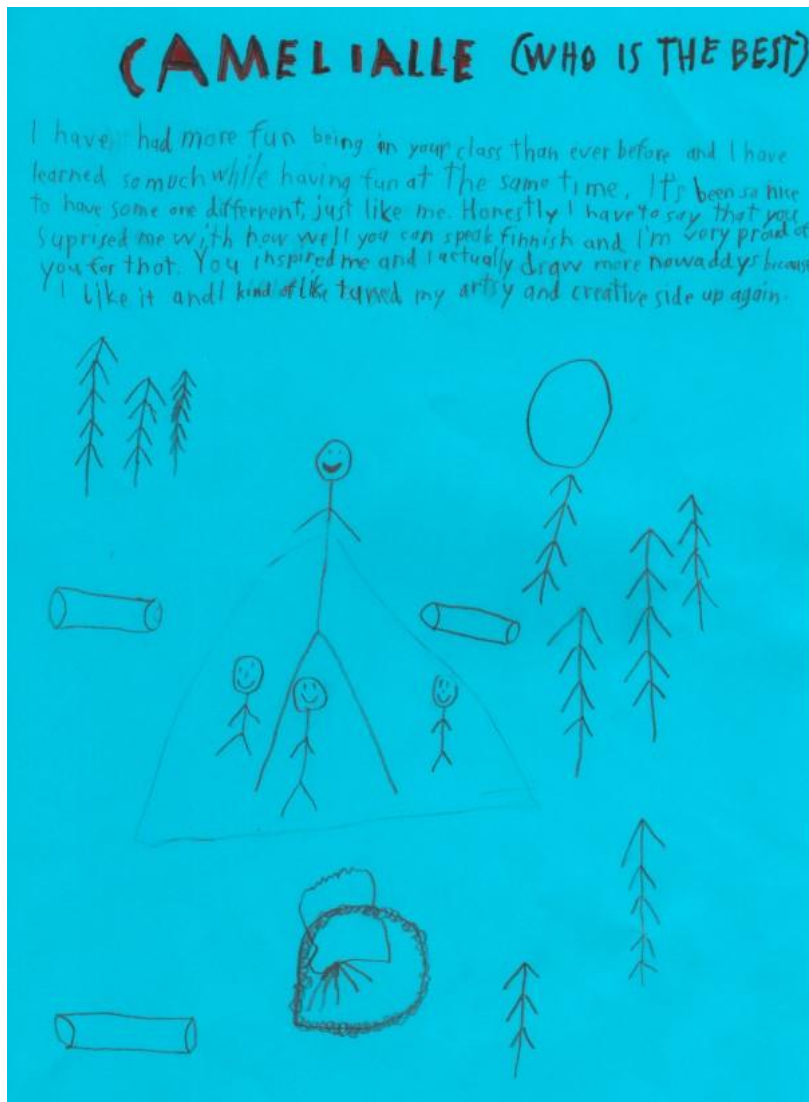 CAMELIALLE (WHO IS THE BEST)
I have had more fun being in your class than ever before and I have
learned so much while having fun at the same time. It's been so nice
to have some one different, just like me. Honestly I have to say that you
Suprised me with how well you can speak finnish and I'm very proud of
you for that. You inspired me and I actually draw more nowaddys because
I like it and I kind of like tuned my artsy and creative side up again.